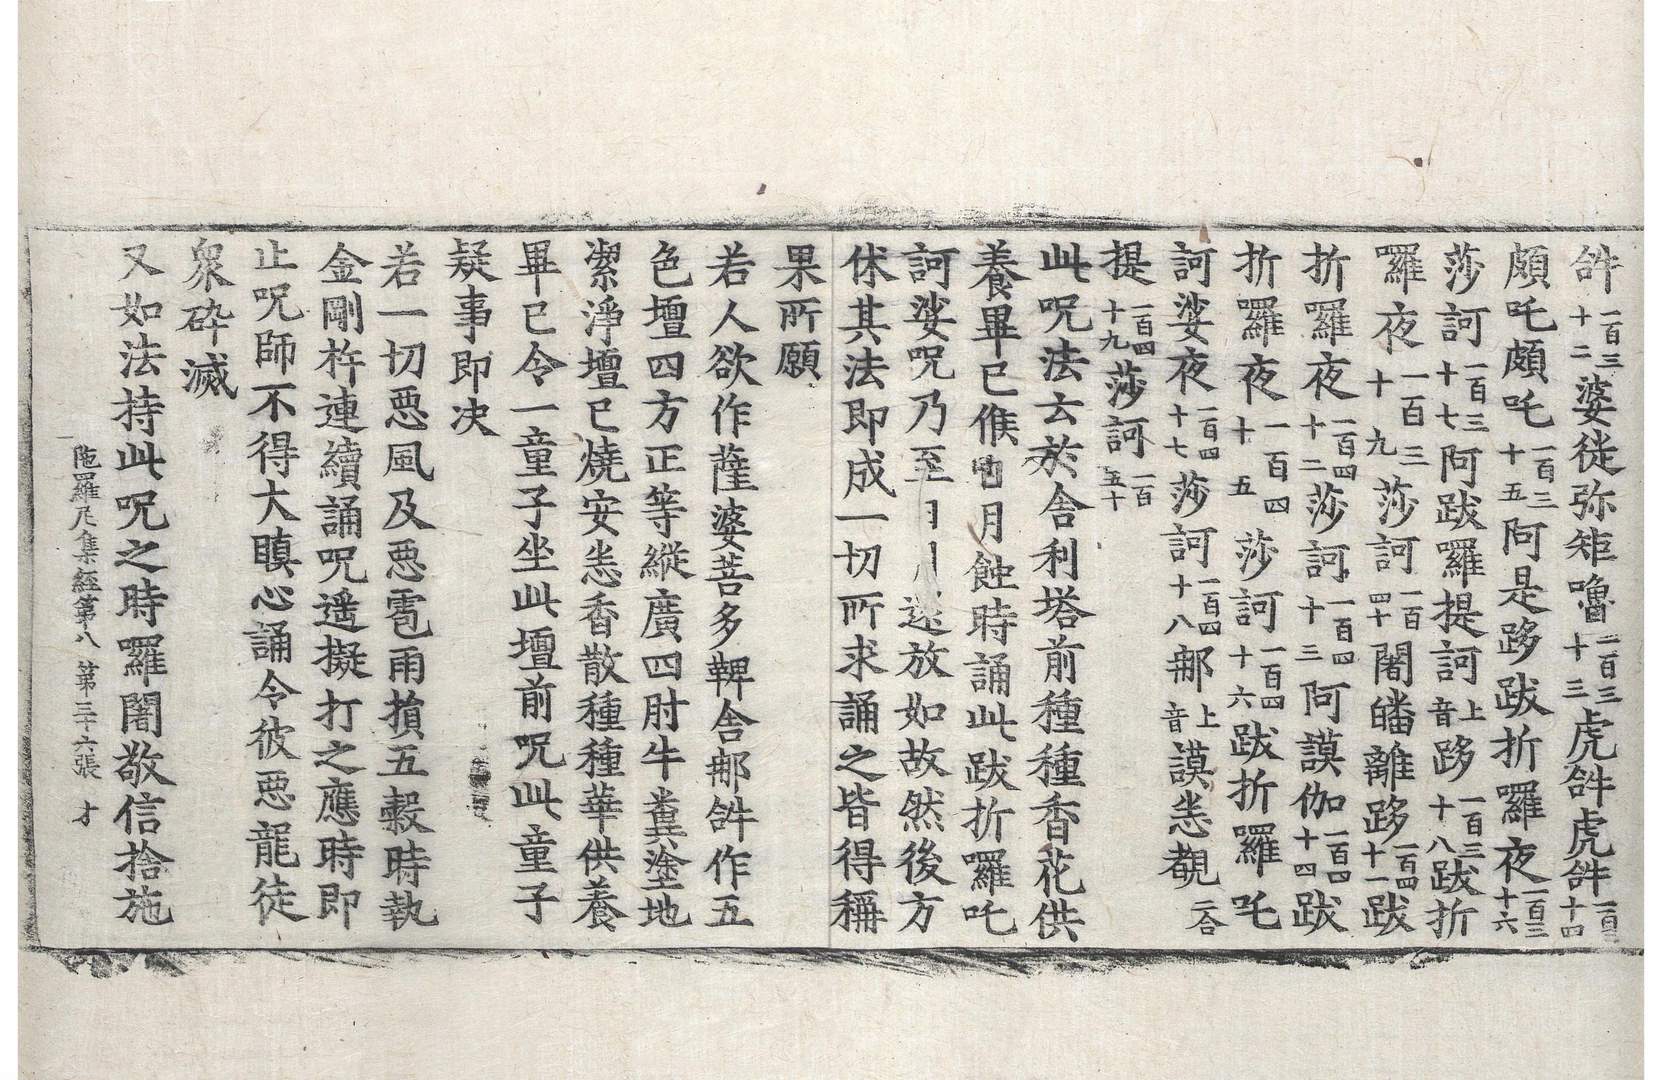 𤙖一百三十二婆徙弥矩嚕一百三十三虎𤙖虎𤙖一百三十四
頗吒頗吒一百三十五阿是跢跋折囉夜一百三十六
莎訶一百三十七阿跋羅提訶上音跢一百三十八跋折
囉夜一百三十九莎訶一百四十闍皤離跢一百四十一跋
折囉夜一百四十二莎訶一百四十三阿謨伽一百四十四跋
折囉夜一百四十五莎訶一百四十六跋折羅吒
訶娑夜一百四十七莎訶一百四十八那上音謨悉覩二合
提一百四十九莎訶一百五十
此呪法云於舍利塔前種種香花供
養畢已候日月蝕時誦此跋折囉吒
訶娑呪乃至日月還放如故然後方
休其法即成一切所求誦之皆得稱
果所願
若人欲作薩婆菩多鞞舍那𤙖作五
色壇四方正等縱廣四肘牛糞塗地
潔淨壇已燒安悉香散種種華供養
畢已令一童子坐此壇前呪此童子
疑事即决
若一切惡風及惡雹雨損五穀時執
金剛杵連續誦呪遥擬打之應時即
止呪師不得大瞋心誦令彼惡龍徒
衆碎滅
又如法持此呪之時囉闍敬信捨施
陁羅尼集經第八 第三十六張 才